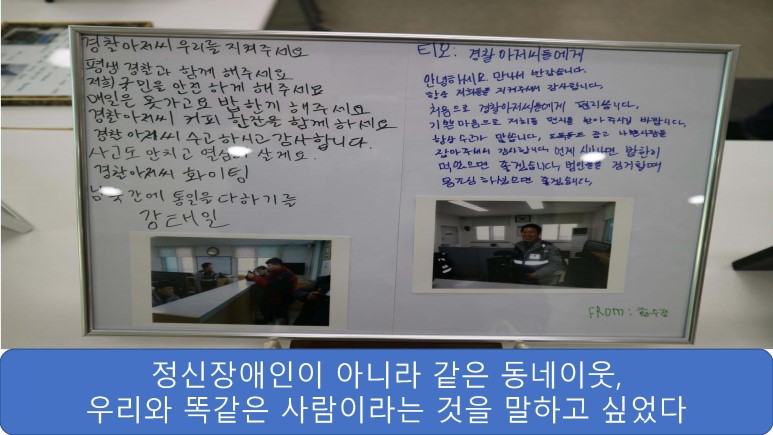 경찰아저씨 우리를 지켜주세요
평생 경찰과 함께 해주세요
저희 국민을 안전하게 해주세요
매일은 못가고요 밥 한끼 해주세요
경찰아저씨 커피 한잔을 함께 하세요
경찰아저씨 수고하시고 감사합니다.
사고도 안치고 열심히 살게요.
경찰아저씨 화이팅
남북간에 통일을 다하기를
강태일
티오: 경찰아저씨들에게
안녕하세요. 만나서 반갑습니다.
항상 저희들을 지켜주셔서 감사합니다.
처음으로 경찰아저씨들에게 편지씁니다.
기쁜마음으로 저희들 편지를 받아주시길 바랍니다.
항상 수고가 많습니다. 도둑들도 잡고 나쁜사람들
잡아주셔서 감사합니다. 언제 시간나면 밥한끼
먹었으면 좋겠습니다. 범인들을 검거할때
몸조심 하셨으면 좋겠습니다.
FROM:
정신장애인이 아니라 같은 동네이웃,
우리와 똑같은 사람이라는 것을 말하고 싶었다